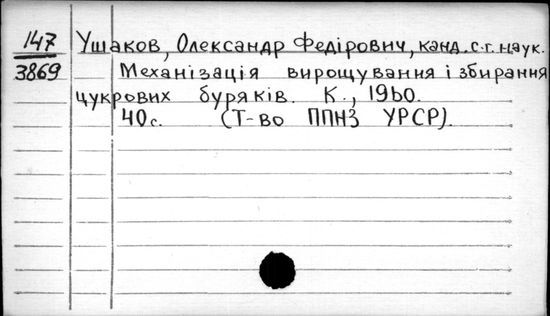 147
3869
Ушаков, Олександр Федірович, канд. с.г. наук.
Механізація вирощування і збирання
цукрових буряків. К., 1960.
40с. (Т-во ППНЗ УРСР).